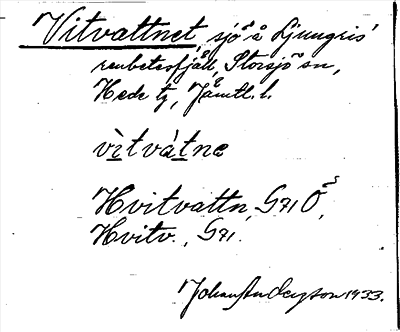 Vitvattnet, sjö å Ljungris'
renbetesfjäll, Storsjö sn,
Hede tg, Jämtl. l.
vìtvátnə
Hvitvattn, G71 Ö,
Hvitv., G71.
Johan Anderson 1933.